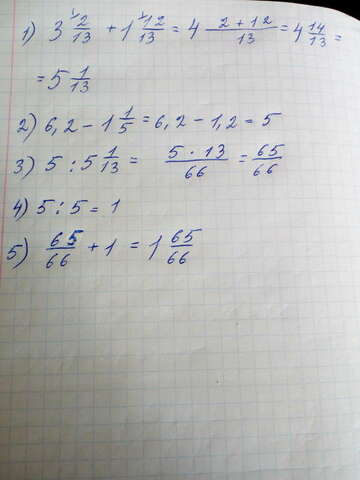 1) 3 2/13 + 1 12/13 = 4 (2 + 12)/13 = 4 14/13 =
= 5 1/13
2) 6,2 - 1 1/5 = 6,2 - 1,2 = 5
3) 5 : 5 1/13 = (5 · 13)/66 = 65/66
4) 5 : 5 = 1
5) 65/66 + 1 = 1 65/66